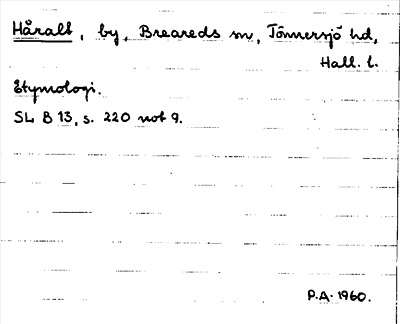 Håralt, by, Breareds sn, Tönnersjö hd,
Hall. l.
Etymologi.
SL B 13, s. 220 not 9.
P.A. 1960.